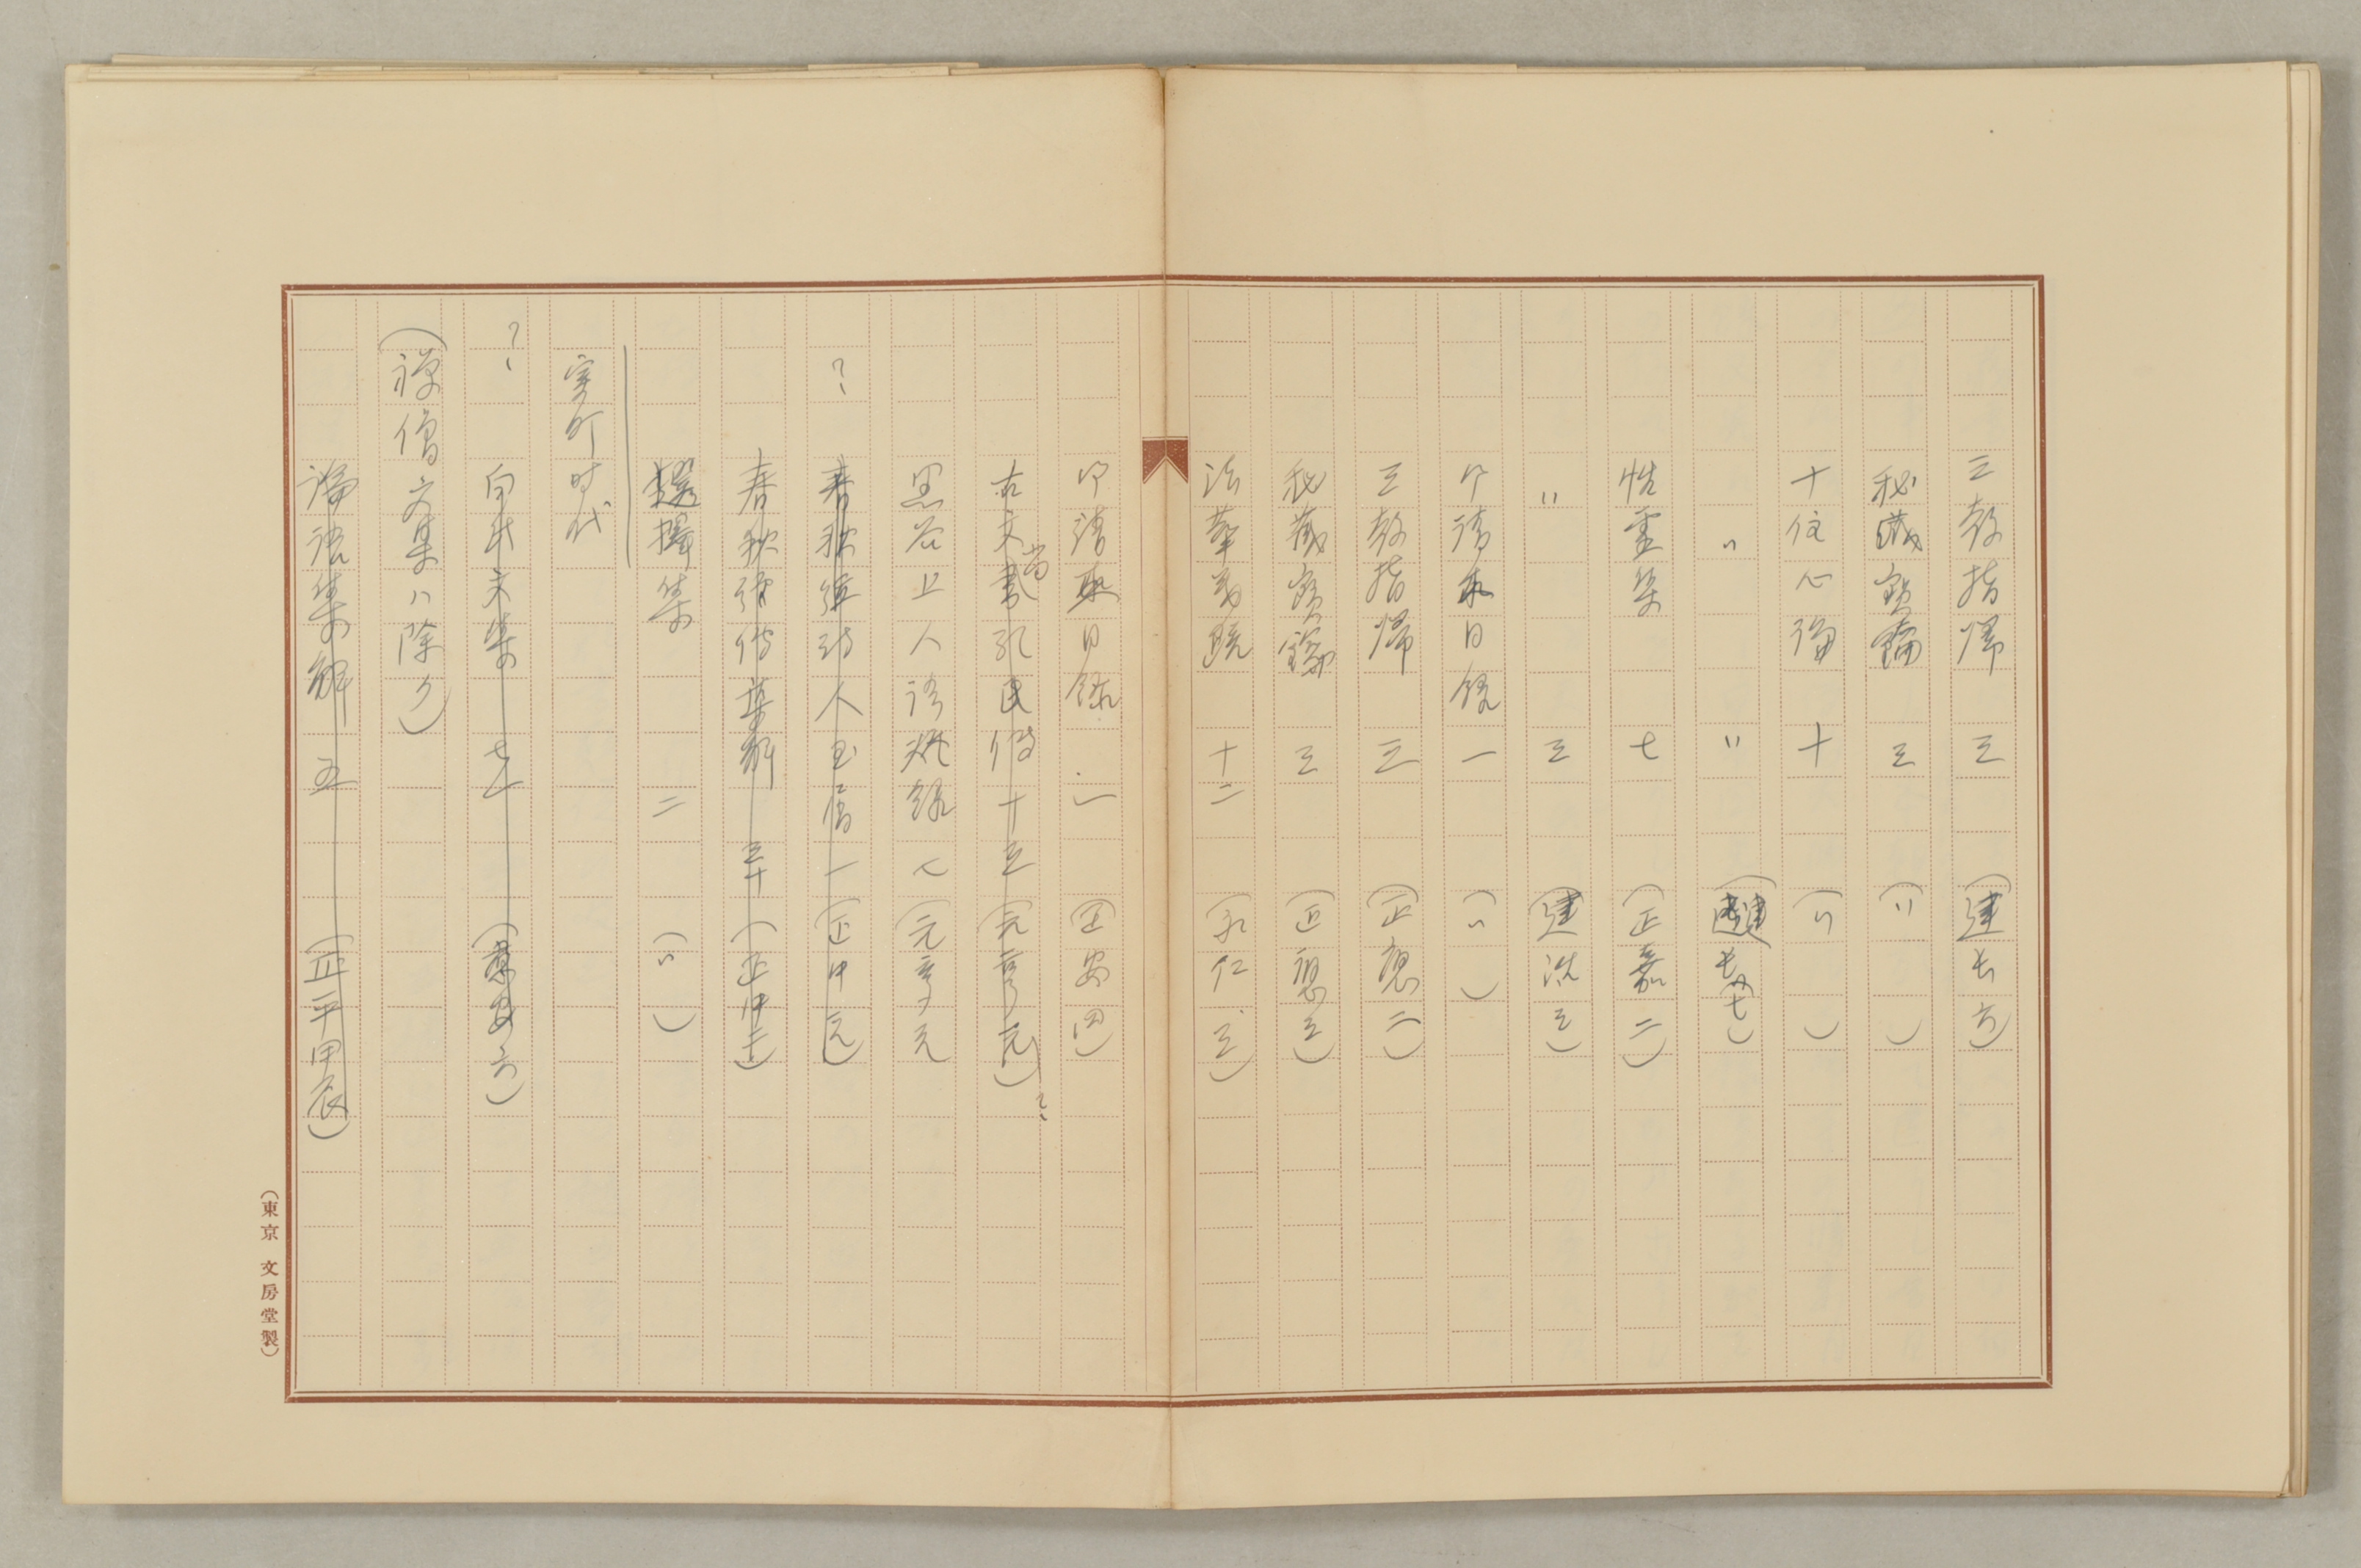 三教指帰 三 (建長六)
秘蔵宝鑰 三 (〃)
十住心論 十 (〃)
〃 〃 〃 (建長七)
性霊集 七 (正嘉二)
〃 三 (建治三)
御請来目録 一 (〃)
三教指帰 三 (正應二)
秘蔵宝鑰 三 (正應三)
法華義疏 十二 (永仁三)
御請来目録 一 (正安四)
古文尚書孔氏傳 十三 (元亨元) ?
黒谷上人語燈録 七 (元亨元
? 春秋 一 (正中元)
春秋經傳集解 三十 (正中二)
選擇集 二 (〃)
室町時代
? 白氏文集 七十 (應安六)
(禅僧文集ハ除ク)
論語集解 五 (正平甲辰)
(東京 文房堂製)